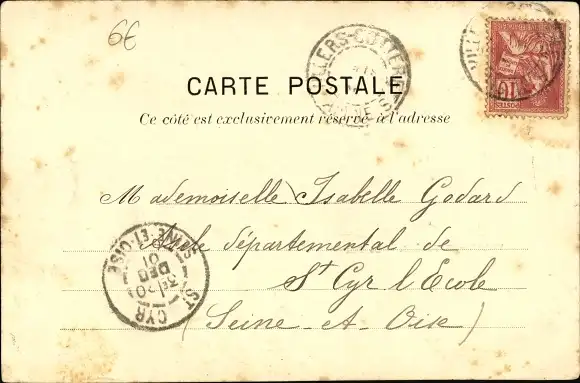 6€
VILLERS-COTTERETS
CARTE POSTALE
Ce côté est exclusivement réservé à l'adresse
10
POSTES
Mademoiselle Isabelle Godard
Asile départemental de
St Cyr l'Ecole
(Seine-et-Oise)
ST CYR
SEINE-ET-OISE
DEC
01